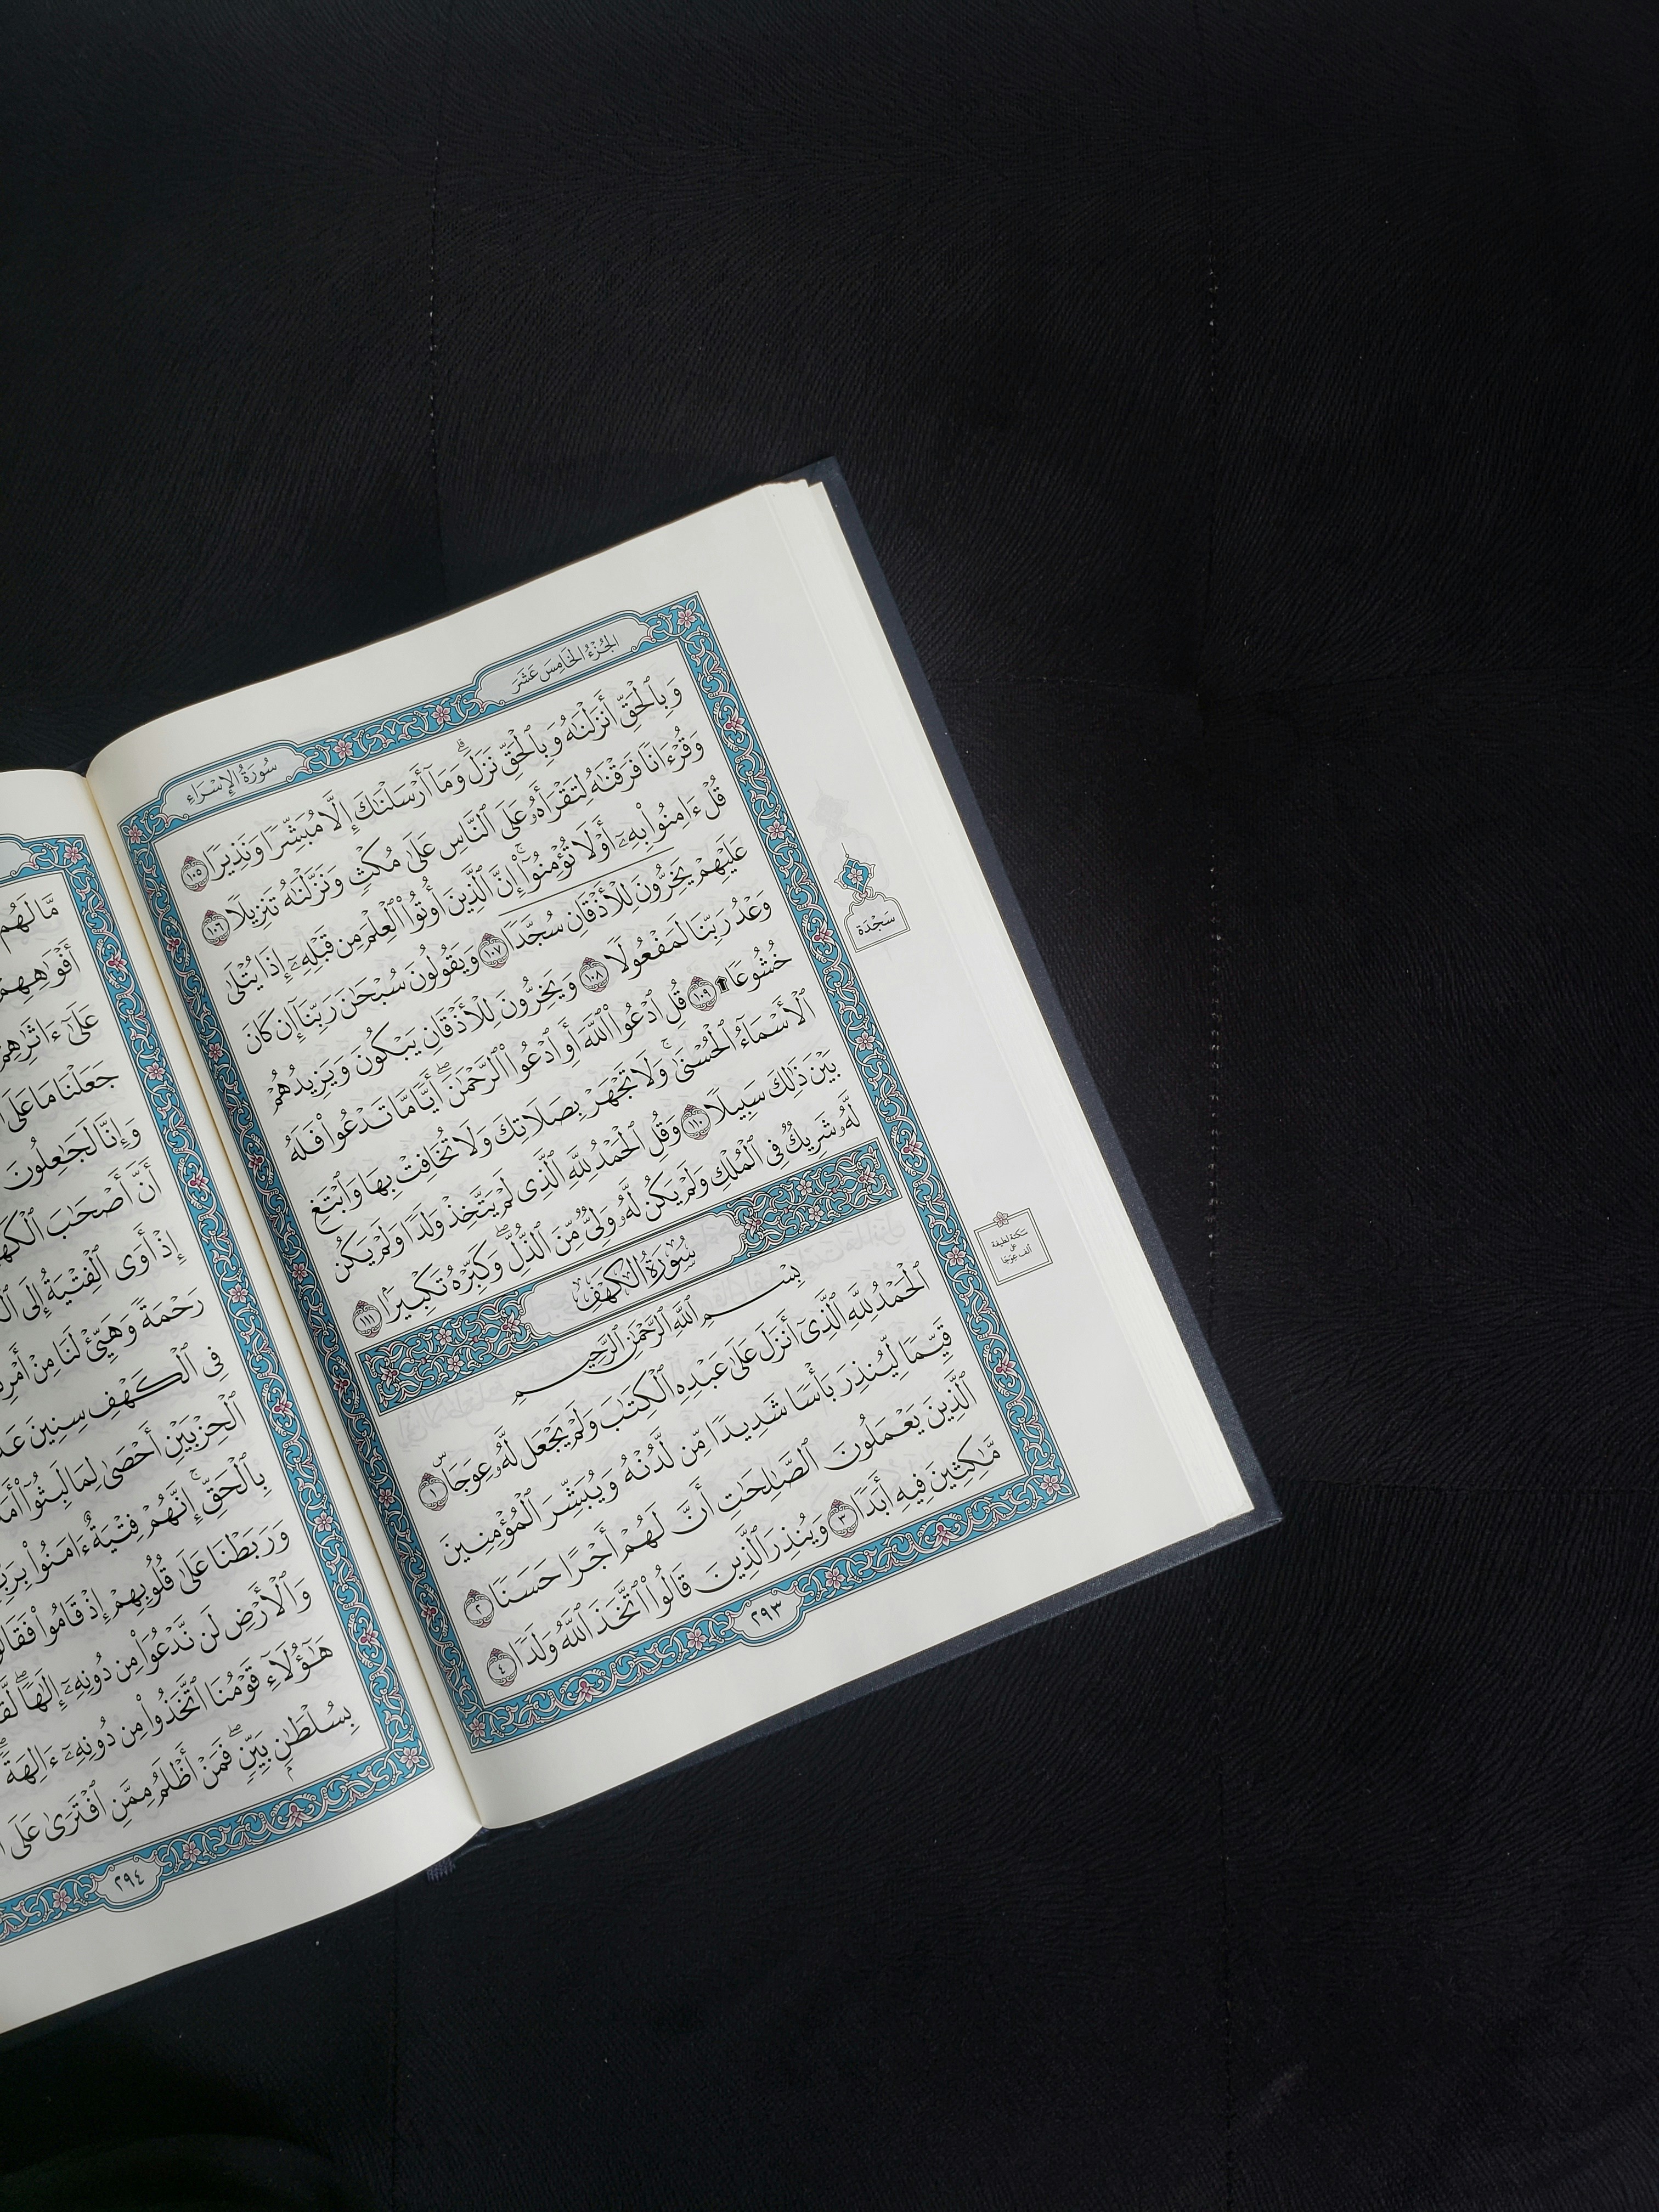 الجُزْءُ الخَامِسَ عَشَرَ
سُورَةُ الإِسْرَاءِ
وَبِٱلْحَقِّ أَنزَلْنَٰهُ وَبِٱلْحَقِّ نَزَلَۗ وَمَآ أَرْسَلْنَٰكَ إِلَّا مُبَشِّرًا وَنَذِيرًا ١٠٥
وَقُرْءَانًا فَرَقْنَٰهُ لِتَقْرَأَهُۥ عَلَى ٱلنَّاسِ عَلَىٰ مُكْثٍ وَنَزَّلْنَٰهُ تَنزِيلًا ١٠٦
قُلْ ءَامِنُوا۟ بِهِۦٓ أَوْ لَا تُؤْمِنُوٓا۟ۚ إِنَّ ٱلَّذِينَ أُوتُوا۟ ٱلْعِلْمَ مِن قَبْلِهِۦٓ إِذَا يُتْلَىٰ
عَلَيْهِمْ يَخِرُّونَ لِلْأَذْقَانِ سُجَّدًا ١٠٧ وَيَقُولُونَ سُبْحَٰنَ رَبِّنَآ إِن كَانَ
وَعْدُ رَبِّنَا لَمَفْعُولًا ١٠٨ وَيَخِرُّونَ لِلْأَذْقَانِ يَبْكُونَ وَيَزِيدُهُمْ
خُشُوعًا۩ ١٠٩ قُلِ ٱدْعُوا۟ ٱللَّهَ أَوِ ٱدْعُوا۟ ٱلرَّحْمَٰنَۖ أَيًّا مَّا تَدْعُوا۟ فَلَهُ
ٱلْأَسْمَآءُ ٱلْحُسْنَىٰۚ وَلَا تَجْهَرْ بِصَلَاتِكَ وَلَا تُخَافِتْ بِهَا وَٱبْتَغِ
بَيْنَ ذَٰلِكَ سَبِيلًا ١١٠ وَقُلِ ٱلْحَمْدُ لِلَّهِ ٱلَّذِى لَمْ يَتَّخِذْ وَلَدًا وَلَمْ يَكُن
لَّهُۥ شَرِيكٌ فِى ٱلْمُلْكِ وَلَمْ يَكُن لَّهُۥ وَلِىٌّ مِّنَ ٱلذُّلِّۖ وَكَبِّرْهُ تَكْبِيرًۢا ١١١
سُورَةُ الكَهْفِ
بِسْمِ ٱللَّهِ ٱلرَّحْمَٰنِ ٱلرَّحِيمِ
ٱلْحَمْدُ لِلَّهِ ٱلَّذِىٓ أَنزَلَ عَلَىٰ عَبْدِهِ ٱلْكِتَٰبَ وَلَمْ يَجْعَل لَّهُۥ عِوَجَاۜ ١
قَيِّمًا لِّيُنذِرَ بَأْسًا شَدِيدًا مِّن لَّدُنْهُ وَيُبَشِّرَ ٱلْمُؤْمِنِينَ
ٱلَّذِينَ يَعْمَلُونَ ٱلصَّٰلِحَٰتِ أَنَّ لَهُمْ أَجْرًا حَسَنًا ٢
مَّٰكِثِينَ فِيهِ أَبَدًا ٣ وَيُنذِرَ ٱلَّذِينَ قَالُوا۟ ٱتَّخَذَ ٱللَّهُ وَلَدًا ٤
٢٩٣
سَجْدَة
سَكتة لطيفة
على
ألف عِوَجَا
مَّا لَهُم
أَفْوَٰهِهِمْ
عَلَىٰٓ ءَاثَٰرِهِمْ
جَعَلْنَا مَا عَلَى
وَإِنَّا لَجَٰعِلُونَ
أَنَّ أَصْحَٰبَ ٱلْكَهْفِ
إِذْ أَوَى ٱلْفِتْيَةُ إِلَى
رَحْمَةً وَهَيِّئْ لَنَا مِنْ أَمْرِنَا
فِى ٱلْكَهْفِ سِنِينَ
ٱلْحِزْبَيْنِ أَحْصَىٰ لِمَا لَبِثُوٓا۟
بِٱلْحَقِّۚ إِنَّهُمْ فِتْيَةٌ ءَامَنُوا۟
وَرَبَطْنَا عَلَىٰ قُلُوبِهِمْ إِذْ قَامُوا۟ فَقَالُوا۟
وَٱلْأَرْضِ لَن نَّدْعُوَا۟ مِن دُونِهِۦٓ إِلَٰهًاۖ
هَٰٓؤُلَآءِ قَوْمُنَا ٱتَّخَذُوا۟ مِن دُونِهِۦٓ ءَالِهَةًۖ
بِسُلْطَٰنٍۭ بَيِّنٍۖ فَمَنْ أَظْلَمُ مِمَّنِ ٱفْتَرَىٰ عَلَى
٢٩٤